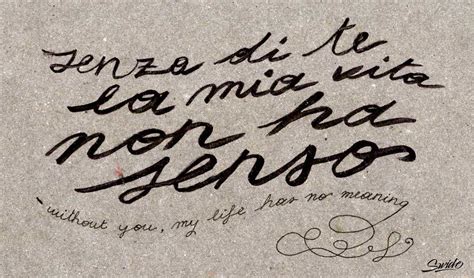 senza di te
la mia vita
non ha
senso
without you, my life has no meaning